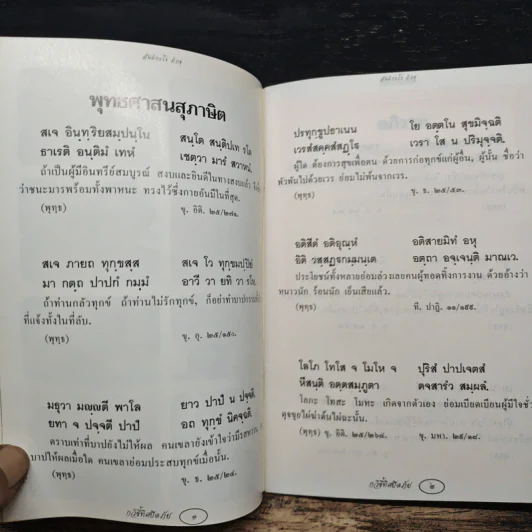 พุทธศาสนสุภาษิต
สเจ อินฺทฺริยสมฺปนฺโน สนฺโต สนฺติปเท รโต
ธาเรติ อนฺติมํ เทหํ เชตฺวา มารํ สวาหนํ.
ถ้าเป็นผู้มีอินทรีย์สมบูรณ์ สงบและยินดีในทางสงบแล้ว
ว่าชนะมารพร้อมทั้งพาหนะ ทรงไว้ซึ่งกายอันมีในที่สุด.
(พุทฺธ) ขุ. อิติ. ๒๕/๒๗๑.
สเจ ภายถ ทุกฺขสฺส สเจ โว ทุกฺขมปฺปิยํ
มา กตฺถ ปาปกํ กมฺมํ อาวี วา ยทิ วา รโห.
ถ้าท่านกลัวทุกข์ ถ้าท่านไม่รักทุกข์, ก็อย่าทำบาปกรรม
ที่แจ้งทั้งในที่ลับ.
(พุทฺธ) ขุ. อุ. ๒๕/๑๕๐.
มธุวา มญฺญตี พาโล ยาว ปาปํ น ปจฺจติ
ยทา จ ปจฺจตี ปาปํ อถ ทุกฺขํ นิคจฺฉติ
ตราบเท่าที่บาปยังไม่ให้ผล คนเขลายังเข้าใจว่ามีรส
บาปให้ผลเมื่อใด คนเขลาย่อมประสบทุกข์เมื่อนั้น.
(พุทฺธ) ขุ. ธ. ๒๕/๒๔.
๑
ปรทุกฺขูปธาเนน โย อตฺตโน สุขมิจฺฉติ
เวรสํสคฺคสํสฏฺโฐ เวรา โส น ปริมุจฺจติ.
ผู้ใด ต้องการสุขเพื่อตน ด้วยการก่อทุกข์แก่ผู้อื่น, ผู้นั้น ชื่อว่า
พัวพันไปด้วยเวร ย่อมไม่พ้นจากเวร.
(พุทฺธ) ขุ. ธ. ๒๕/๕๓.
อติสีตํ อติอุณฺหํ อติสายมิทํ อหุ
อิติ วิสฺสฏฺฐกมฺมนฺเต อตฺถา อจฺเจนฺติ มาณเว.
ประโยชน์ทั้งหลายย่อมล่วงเลยคนผู้ทอดทิ้งการงาน ด้วยอ้างว่า
หนาวนัก ร้อนนัก เย็นเสียแล้ว.
(พุทฺธ) ที. ปาฏิ. ๑๑/๑๙๙.
โลโภ โทโส จ โมโห จ ปุริสํ ปาปเจตสํ
หึสนฺติ อตฺตสมฺภูตา ตจสารํว สมฺผลํ.
โลภะ โทสะ โมหะ เกิดจากตัวเอง ย่อมเบียดเบียนผู้มีใจชั่ว
ดุจขุยไผ่ฆ่าต้นไผ่ฉะนั้น.
(พุทฺธ) ขุ. อิติ. ๒๕/๒๖๔. ขุ. มหา. ๒๙/๑๘.
๒